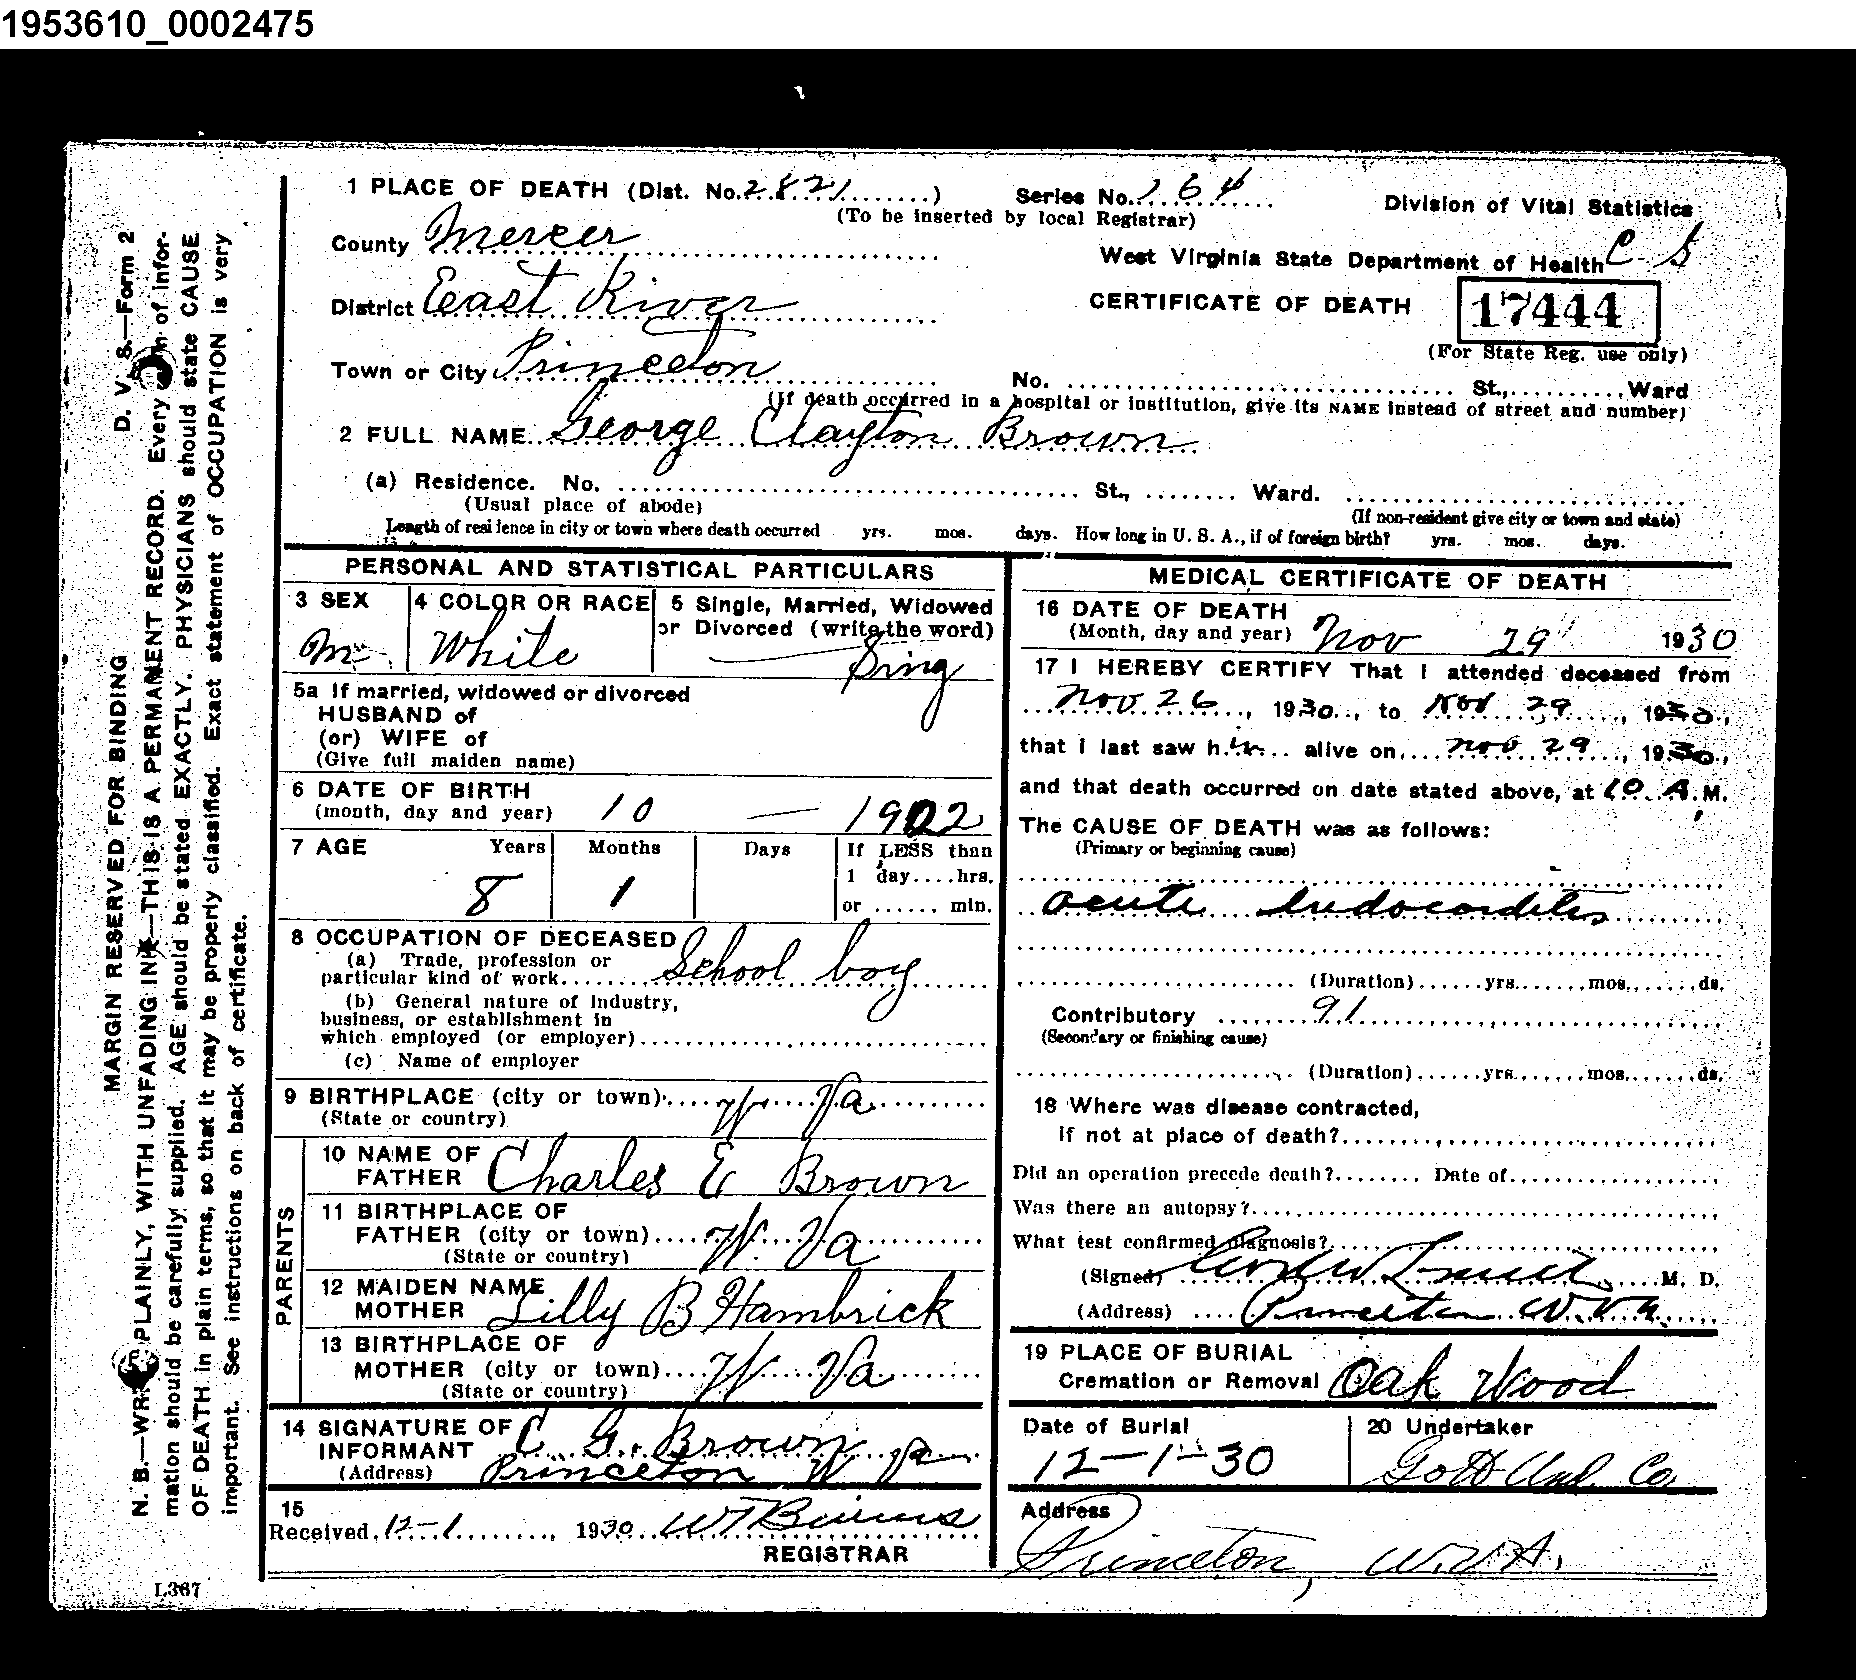 1953610_0002475
1 PLACE OF DEATH (Dist. No. 2821) Series No. 164
(To be inserted by local Registrar)
Division of Vital Statistics
County Mercer
West Virginia State Department of Health C S
District East River
CERTIFICATE OF DEATH 17444
(For State Reg. use only)
Town or City Princeton
No. St., Ward
(If death occurred in a hospital or institution, give its NAME instead of street and number)
2 FULL NAME George Clayton Brown
(a) Residence. No. St., Ward.
(Usual place of abode) (If non-resident give city or town and state)
Length of residence in city or town where death occurred yrs. mos. days. How long in U. S. A., if of foreign birth? yrs. mos. days.
PERSONAL AND STATISTICAL PARTICULARS
3 SEX 4 COLOR OR RACE 5 Single, Married, Widowed
or Divorced (write the word)
M White Sing
5a If married, widowed or divorced
HUSBAND of
(or) WIFE of
(Give full maiden name)
6 DATE OF BIRTH
(month, day and year) 10 — 1922
7 AGE Years Months Days If LESS than
1 day....hrs.
or ...... min.
8 1
8 OCCUPATION OF DECEASED
(a) Trade, profession or
particular kind of work School boy
(b) General nature of Industry,
business, or establishment in
which employed (or employer)
(c) Name of employer
9 BIRTHPLACE (city or town) W Va
(State or country)
PARENTS
10 NAME OF
FATHER Charles E Brown
11 BIRTHPLACE OF
FATHER (city or town) W. Va
(State or country)
12 MAIDEN NAME
MOTHER Lilly B Hambrick
13 BIRTHPLACE OF
MOTHER (city or town) W Va
(State or country)
14 SIGNATURE OF
INFORMANT C G. Brown
(Address) Princeton W Va
15
Received 12-1, 1930
REGISTRAR
MEDICAL CERTIFICATE OF DEATH
16 DATE OF DEATH
(Month, day and year) Nov 29 1930
17 I HEREBY CERTIFY That I attended deceased from
Nov 26, 1930, to Nov 29, 1930,
that I last saw him alive on Nov 29, 1930,
and that death occurred on date stated above, at 10 A.M.
The CAUSE OF DEATH was as follows:
(Primary or beginning cause)
acute Endocarditis
(Duration) yrs. mos. ds.
Contributory 91
(Secondary or finishing cause)
(Duration) yrs. mos. ds.
18 Where was disease contracted,
if not at place of death?
Did an operation precede death? Date of
Was there an autopsy?
What test confirmed diagnosis?
(Signed) M. D.
(Address) Princeton W. Va.
19 PLACE OF BURIAL
Cremation or Removal Oak Wood
Date of Burial 20 Undertaker
12-1-30 Gott Und. Co
Address
Princeton, W.VA.
D. V. S.—Form 2
MARGIN RESERVED FOR BINDING
N. B.—WRITE PLAINLY, WITH UNFADING INK—THIS IS A PERMANENT RECORD. Every item of infor-
mation should be carefully supplied. AGE should be stated EXACTLY. PHYSICIANS should state CAUSE
OF DEATH in plain terms, so that it may be properly classified. Exact statement of OCCUPATION is very
important. See instructions on back of certificate.
L367